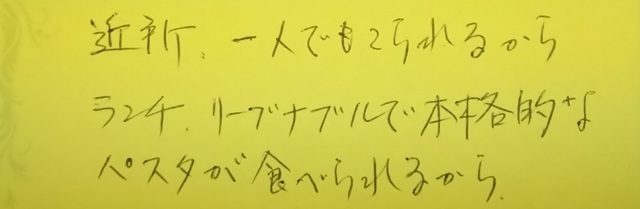 近所、一人でもこられるから
ランチ、リーブナブルで本格的な
パスタが食べられるから、